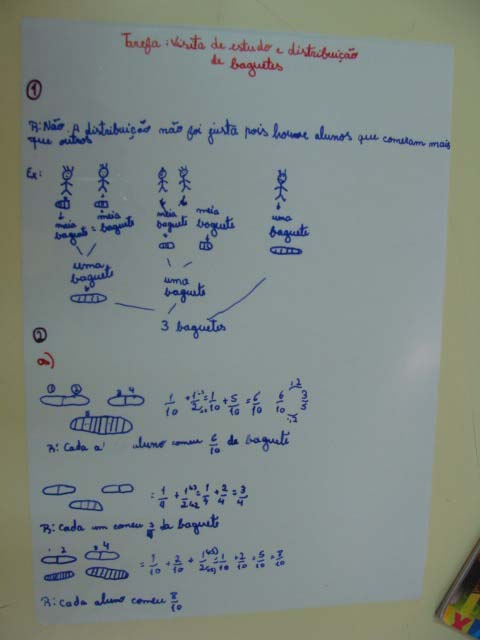 Tarefa: Visita de estudo e distribuição
de baguetes
1
R: Não. A distribuição não foi justa pois houve alunos que comeram mais
que outros
Ex:
meia baguete = meia baguete meia baguete meia baguete uma baguete
uma baguete uma baguete
3 baguetes
2
a)
1 2 3 4
5
1/10 + 1/2 = 1/10 + 5/10 = 6/10 6/10 :2 :2 3/5
R: Cada a aluno comeu 6/10 de baguete
= 1/4 + 1/2 = 1/4 + 2/4 = 3/4
R: Cada um comeu 3/4 da baguete
1 2 3 4
= 1/10 + 2/10 + 1/2 = 1/10 + 2/10 + 5/10 = 8/10
R: Cada aluno comeu 8/10